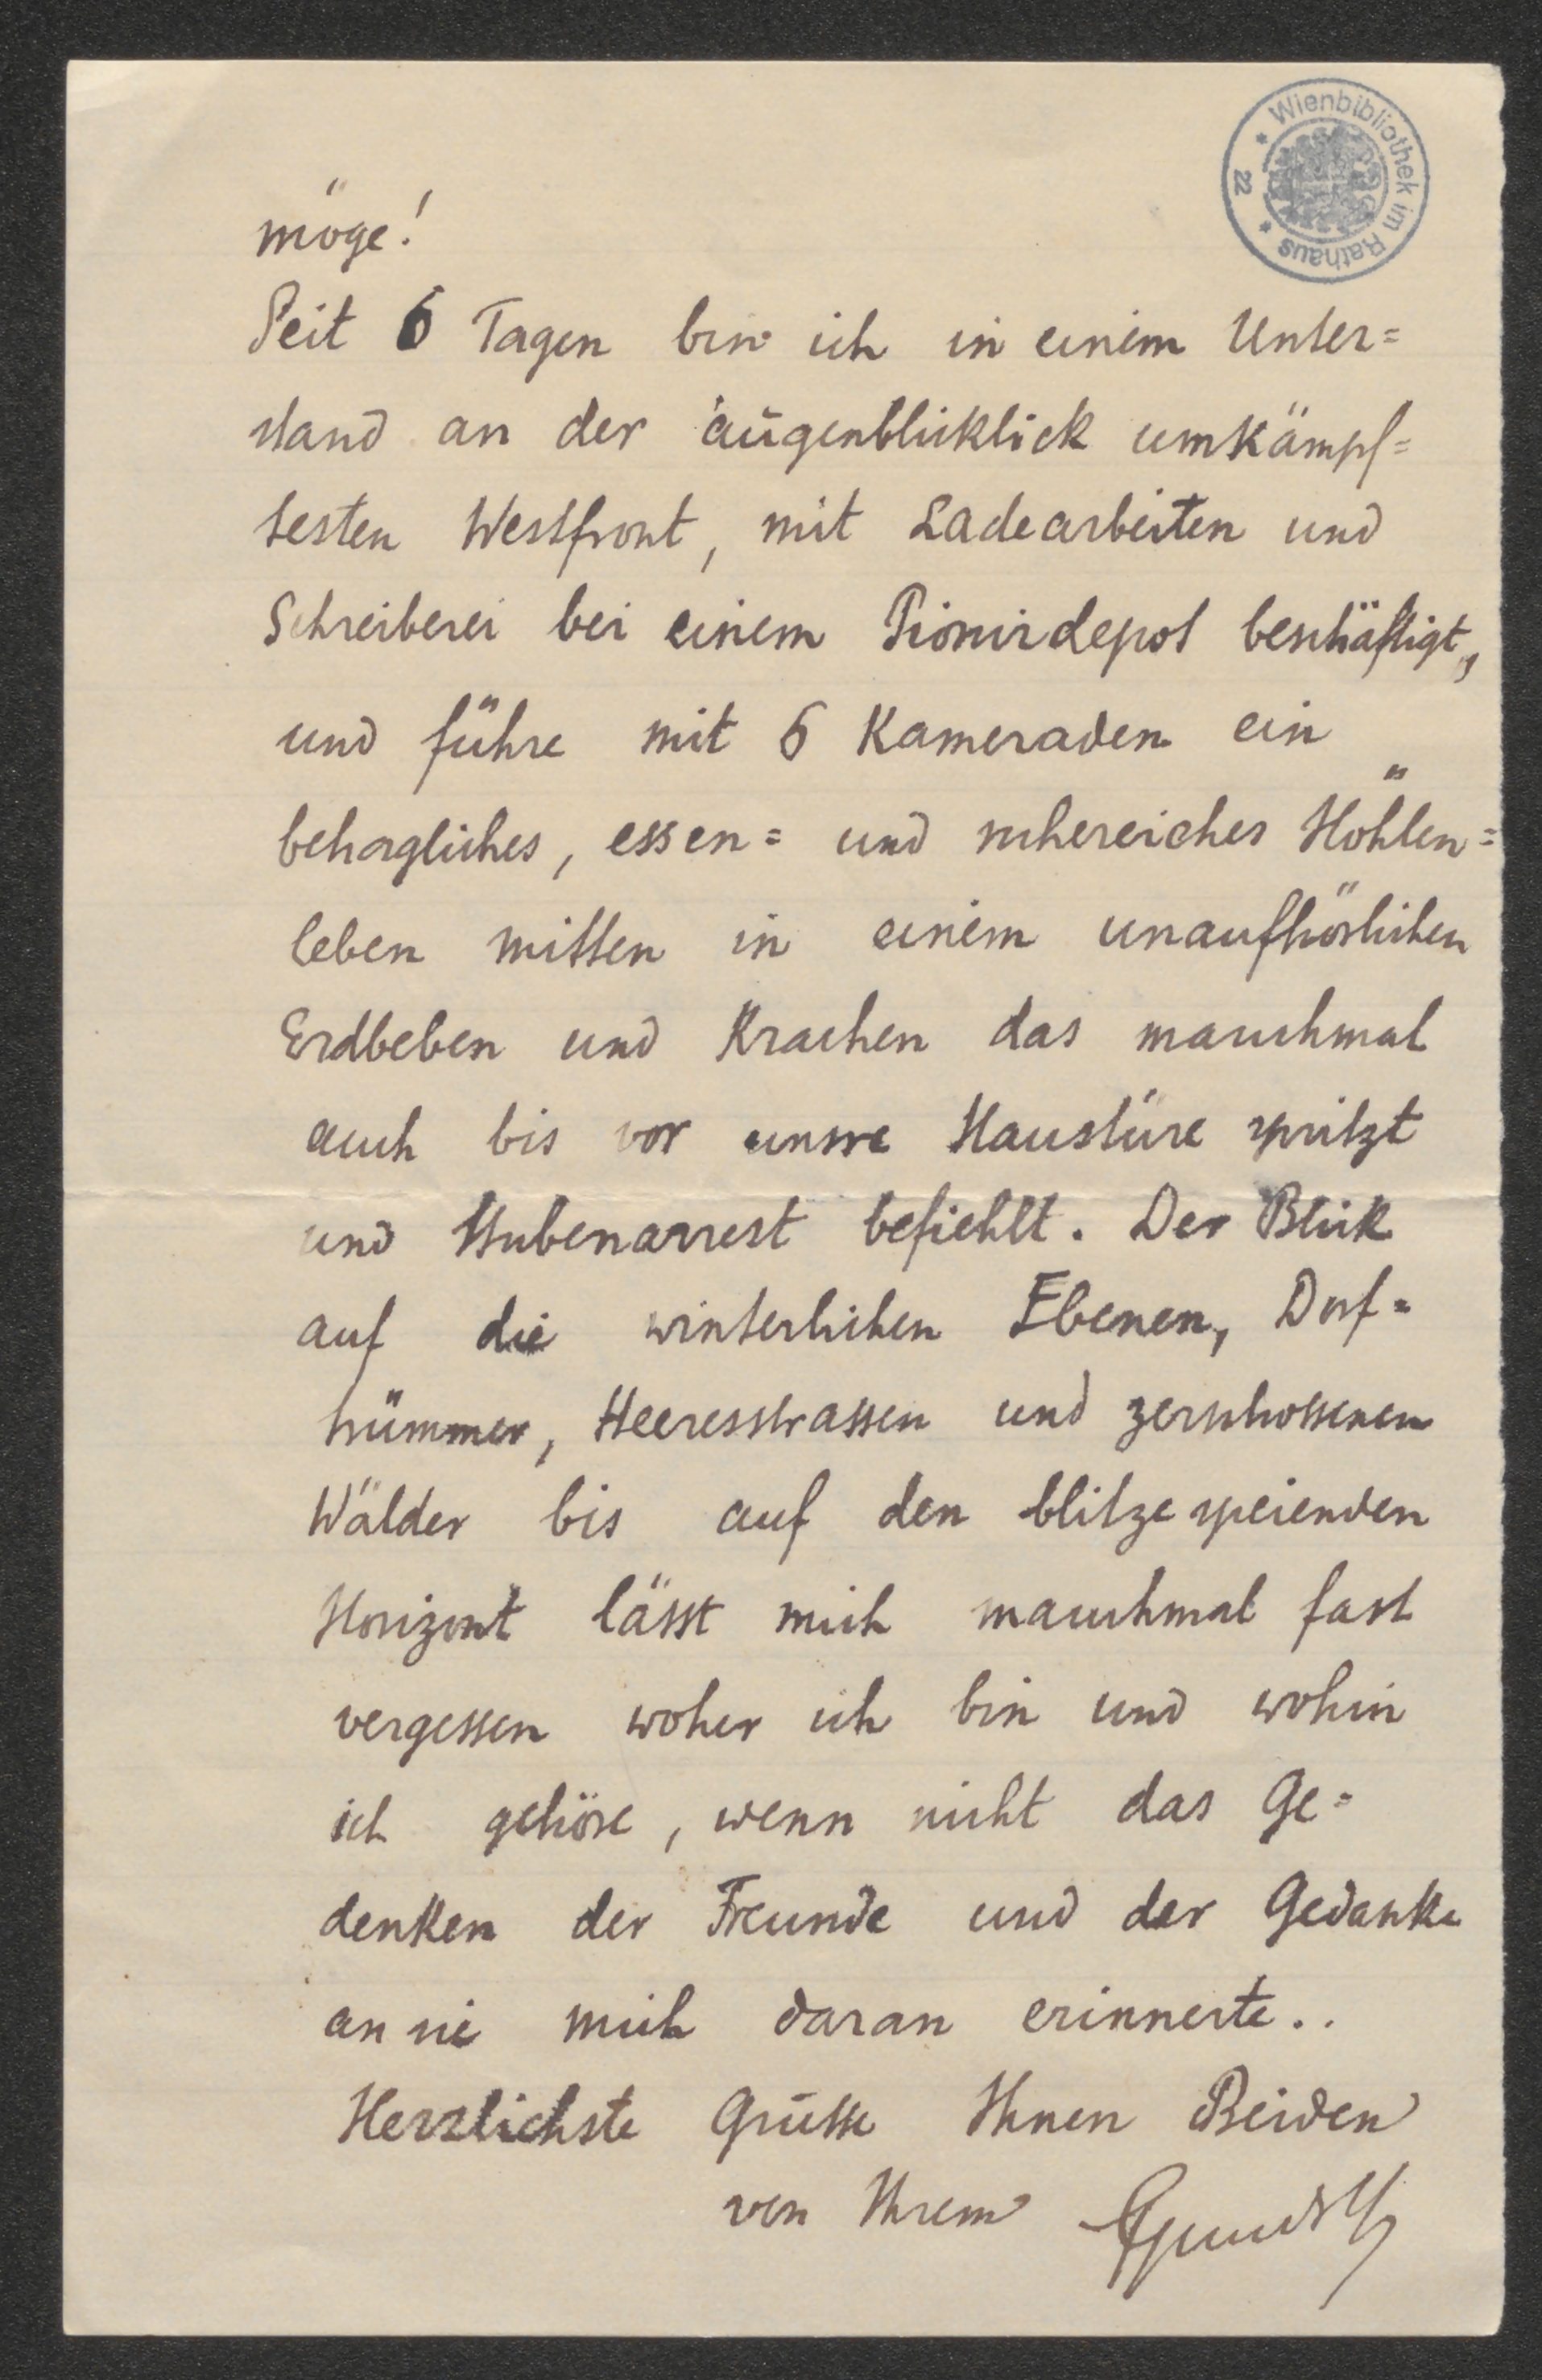 Wienbibliothek im Rathaus
22
möge!
Seit 6 Tagen bin ich in einem Unter=
stand an der augenblicklick umkämpf=
testen Westfront, mit Ladearbeiten und
Schreiberei bei einem Pionirdepot beschäftigt,
und führe mit 6 Kameraden ein
behagliches, essen= und ruhereiches Höhlen=
leben mitten in einem unaufhörlichen
Erdbeben und Krachen das manchmal
auch bis vor unsre Haustüre spritzt
und Stubenarrest befiehlt. Der Blick
auf die winterlichen Ebenen, Dorf=
trümmer, Heeresstrassen und zerschossenen
Wälder bis auf den blitzespeienden
Horizont lässt mich manchmal fast
vergessen woher ich bin und wohin
ich gehöre, wenn nicht das Ge=
denken der Freunde und der Gedanke
an sie mich daran erinnerte..
Herzlichste Grüsse Ihnen Beiden
von Ihrem